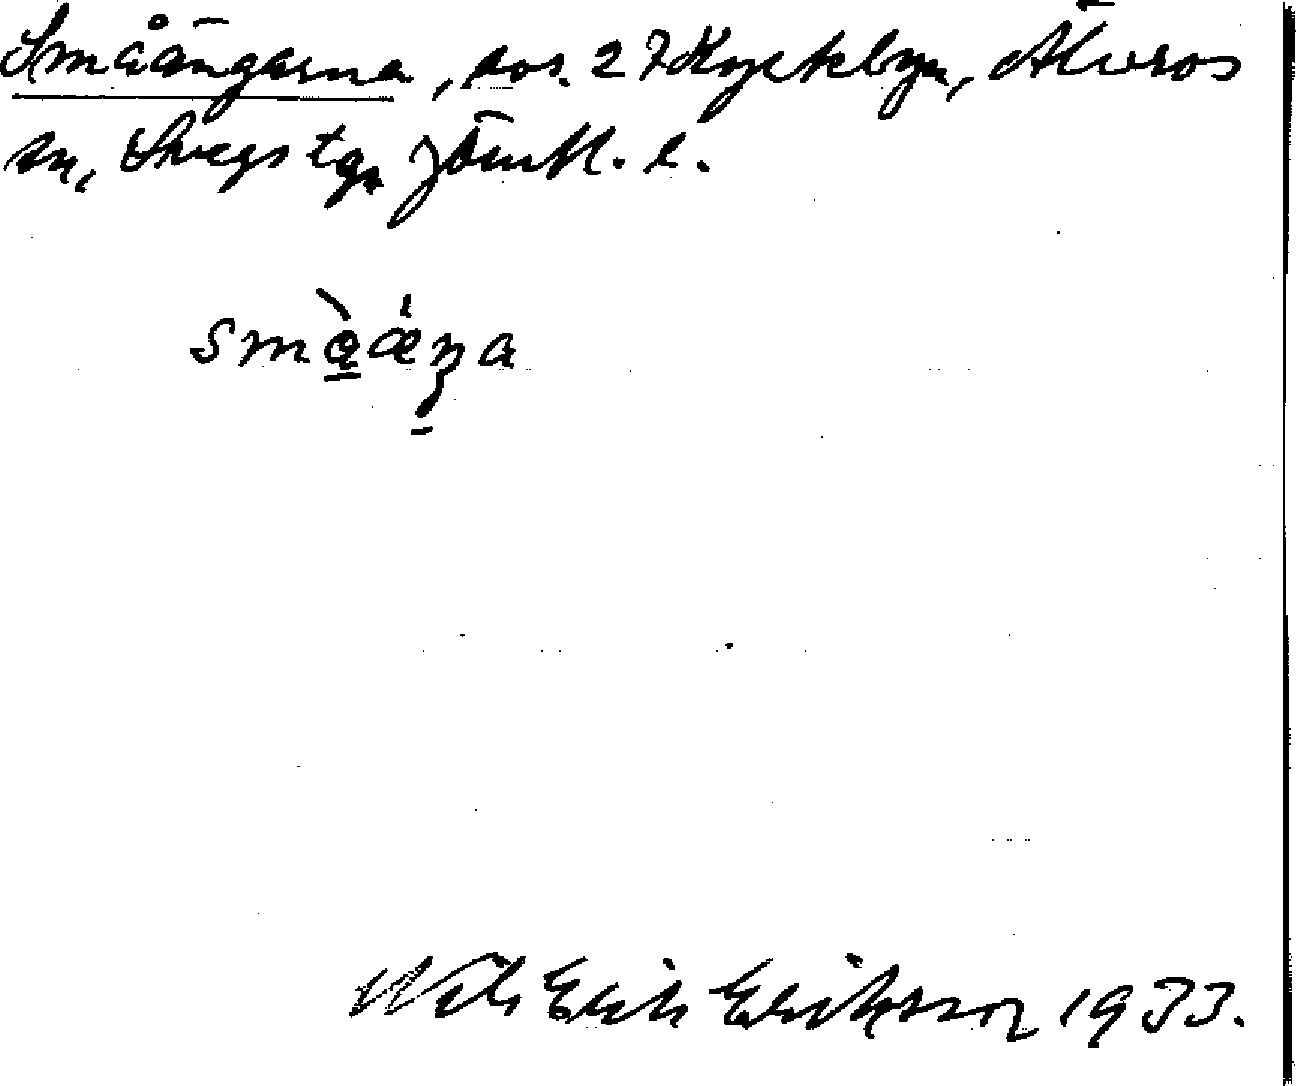 Småängarna, sos. 27 Kyrkbyn, Älvros
sn, Svegs tg, Jämtl. l.
små̀ǽŋa
Nils Erik Eriksson 1933.